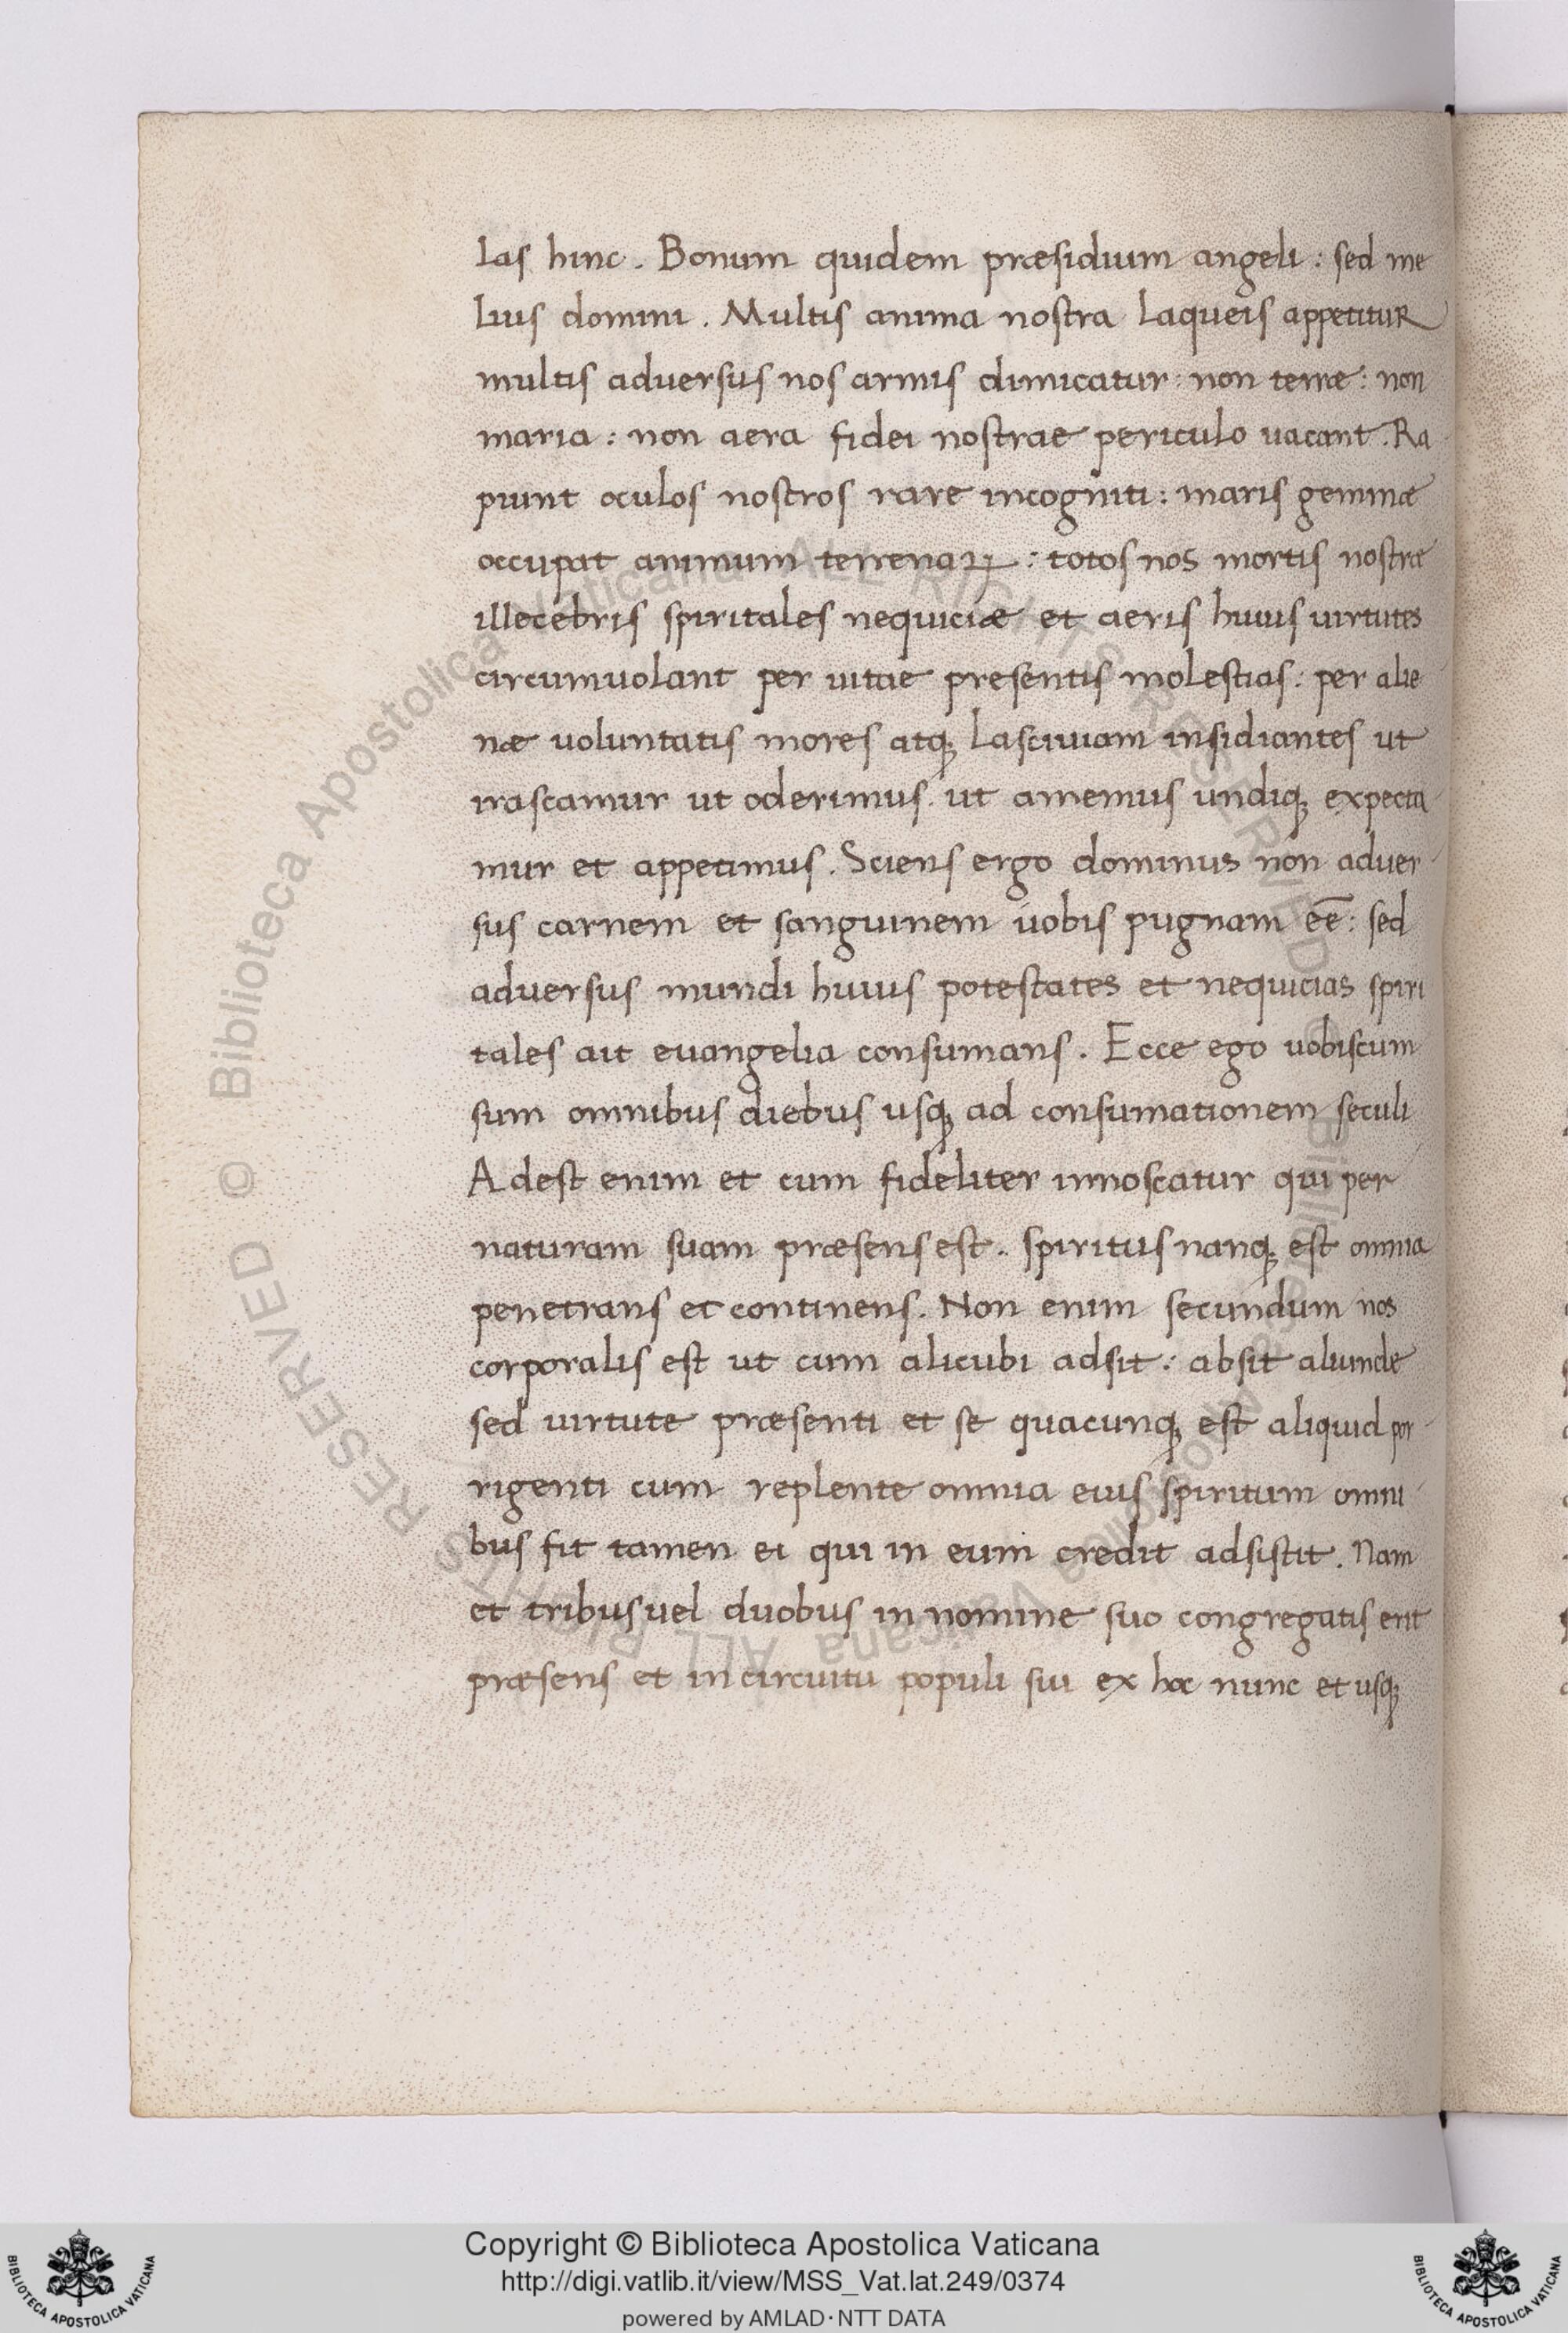 las hinc. Bonum quidem præsidium angeli: sed me
lius domini. Multis anima nostra laqueis appetitur
multis adversus nos armis dimicatur: non terræ: non
maria: non aera fidei nostrae periculo vacant. Ra
piunt oculos nostros rare incogniti: maris gemmæ
occupat animum terrenaꝝ: totos nos mortis nostræ
illecebris spiritales nequiciæ et aeris huius uirtutes
circumuolant per uitae presentis molestias: per alie
næ uoluntatis mores atqꝫ lasciuiam insidiantes ut
irascamur ut oderimus ut amemus undiqꝫ expecta
mur et appetimus. Sciens ergo dominus non adver
sus carnem et sanguinem uobis pugnam ee̅: sed
adversus mundi huius potestates et nequicias spiri
tales ait euangelia consumans. Ecce ego uobiscum
sum omnibus diebus usqꝫ ad consumationem seculi
Adest enim et cum fideliter innoscatur qui per
naturam suam præsens est. spiritus nanqꝫ est omnia
penetrans et continens. Non enim secundum nos
corporalis est ut cum alicubi adsit: absit aliunde
sed uirtute præsenti et se quacunqꝫ est aliquid por
rigenti cum replente omnia eius spiritum omni
bus fit tamen ei qui in eum credit adsistit. Nam
et tribus uel duobus in nomine suo congregatis erit
præsens et in circuitu populi sui ex hoc nunc et usqꝫ
© Biblioteca Apostolica Vaticana ALL RIGHTS RESERVED © Biblioteca Apostolica Vaticana ALL RIGHTS RESERVED
Copyright © Biblioteca Apostolica Vaticana
http://digi.vatlib.it/view/MSS_Vat.lat.249/0374
powered by AMLAD·NTT DATA
BIBLIOTECA APOSTOLICA VATICANA
BIBLIOTECA APOSTOLICA VATICANA